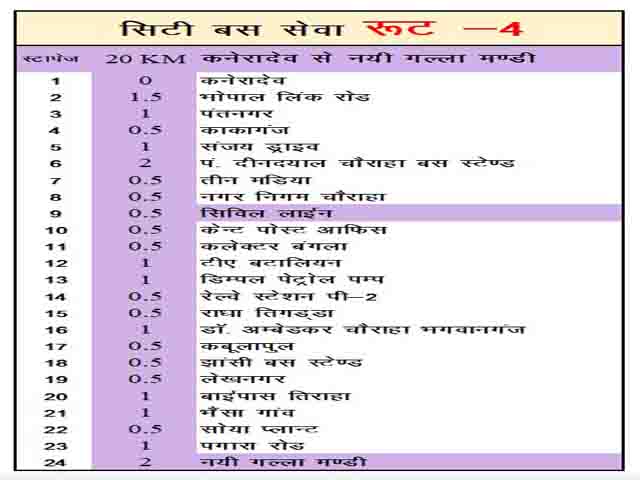 सिटी बस सेवा रूट –4
स्टापेज 20 KM कनेरादेव से नयी गल्ला मण्डी
1 0 कनेरादेव
2 1.5 भोपाल लिंक रोड
3 1 पंतनगर
4 0.5 काकागंज
5 1 संजय ड्राइव
6 2 पं. दीनदयाल चौराहा बस स्टेण्ड
7 0.5 तीन मडिया
8 0.5 नगर निगम चौराहा
9 0.5 सिविल लाईन
10 0.5 केन्ट पोस्ट आफिस
11 0.5 कलेक्टर बंगला
12 1 टीए बटालियन
13 1 डिम्पल पेट्रोल पम्प
14 0.5 रेल्वे स्टेशन पी–2
15 0.5 राधा तिगड्डा
16 1 डॉ. अम्बेडकर चौराहा भगवानगंज
17 0.5 कबूलापुल
18 0.5 झांसी बस स्टेण्ड
19 0.5 लेखनगर
20 1 बाईपास तिराहा
21 1 भैंसा गांव
22 0.5 सोया प्लान्ट
23 1 पगारा रोड
24 2 नयी गल्ला मण्डी